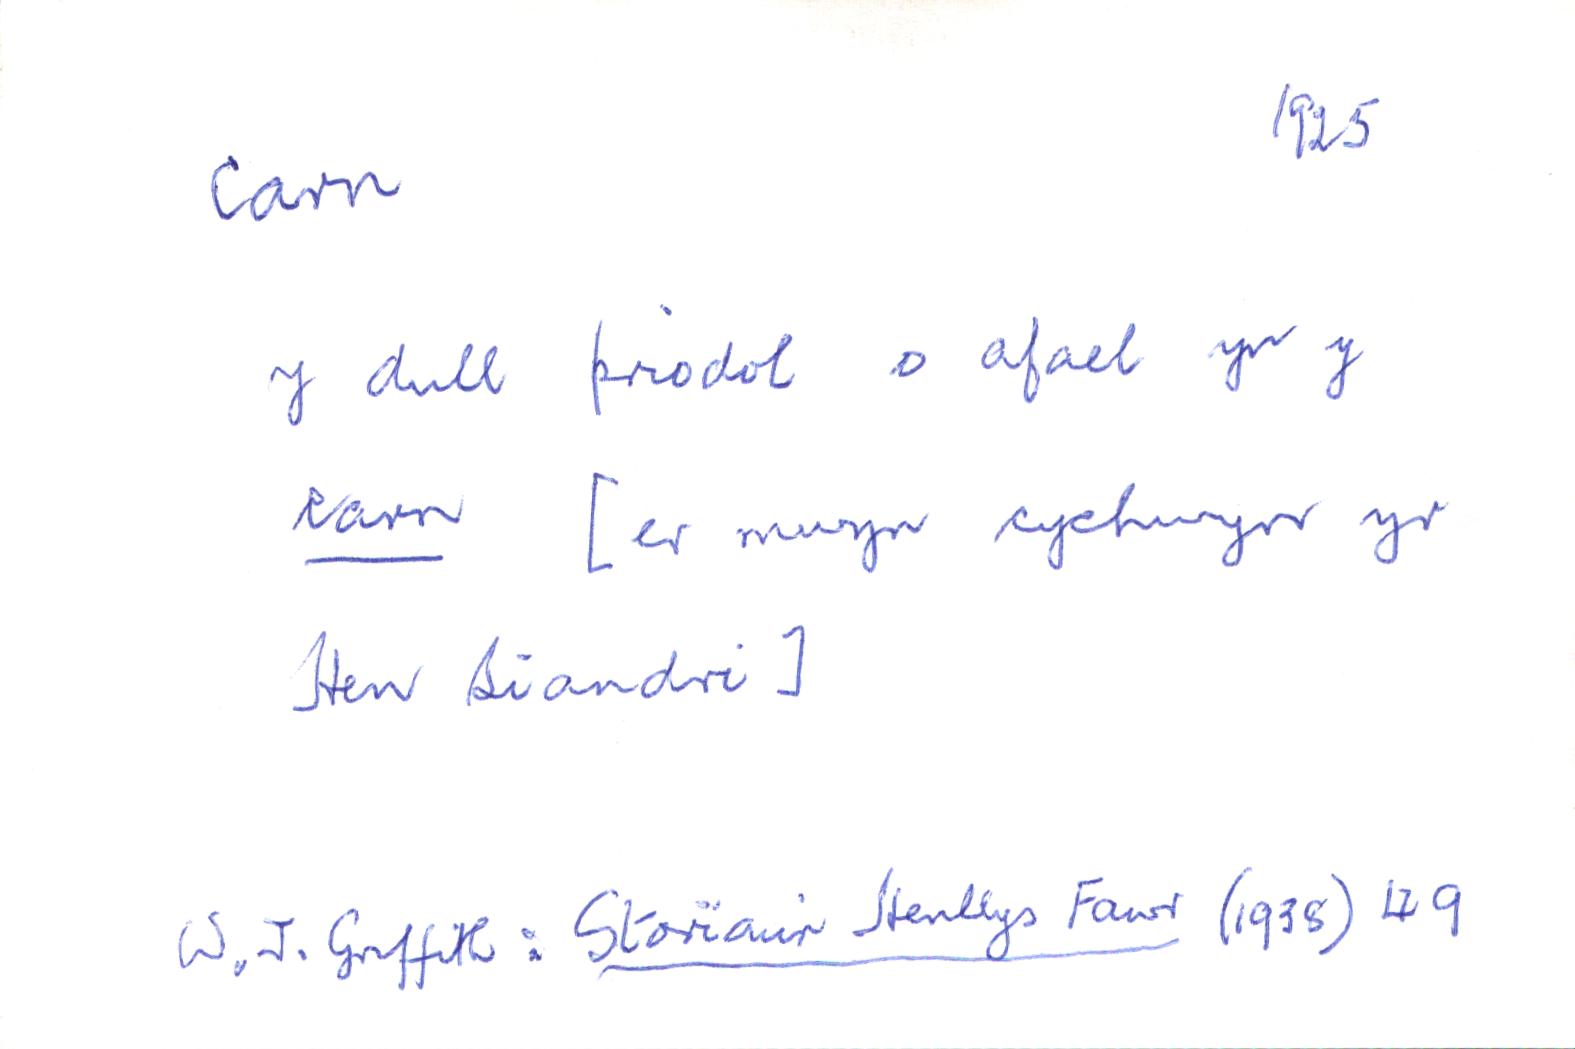 1925
Carn
y dull priodol o afael yn y
carn [er mwyn cychwyn yr
Hen Siandri]
W. J. Griffith : Storïau'r Henllys Fawr (1938) 49